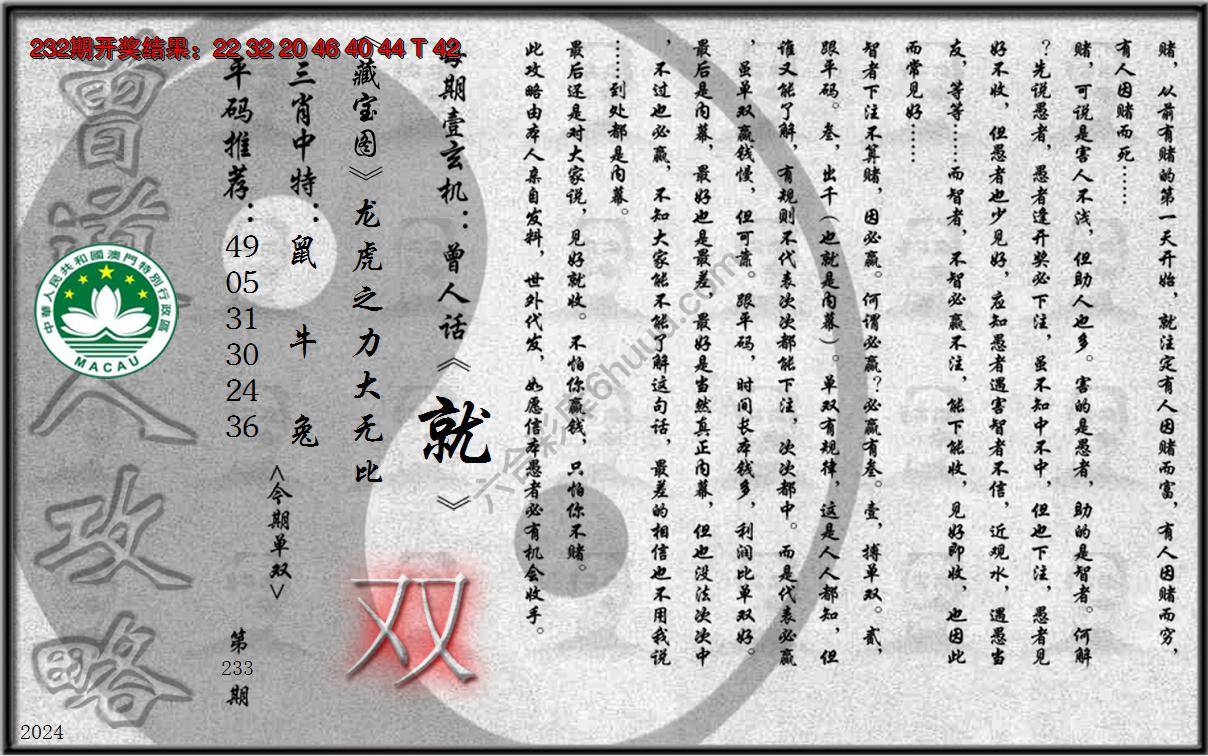 232期开奖结果：22 32 20 46 40 44 T 42
赌，从前有赌的第一天开始，就注定有人因赌而富，有人因赌而穷，
有人因赌而死……
赌，可说是害人不浅，但助人也多。害的是愚者，助的是智者。何解
？先说愚者，愚者逢开奖必下注，虽不知中不中，但也下注，愚者见
好不收，但愚者也少见好，应知愚者遇害智者不信，近观水，遇愚当
友，等等……而智者，不智必赢不注，能下能收，见好即收，也因此
而常见好……
智者下注不算赌，因必赢。何谓必赢？必赢有叁。壹，搏单双。贰，
跟平码。叁，出千（也就是内幕）。单双有规律，这是人人都知，但
谁又能了解，有规则不代表次次都能下注，次次都中。而是代表必赢
，虽单双赢钱慢，但可靠。跟平码，时间长本钱多，利润比单双好。
最后是内幕，最好也是最差，最好是当然真正内幕，但也没法次次中
，不过也必赢，不知大家能不能了解这句话，最差的相信也不用我说
……到处都是内幕。
最后还是对大家说，见好就收。不怕你赢钱，只怕你不赌。
此攻略由本人亲自发料，世外代发，如愿信本愚者必有机会收手。
每期壹玄机：曾人话《就》
《藏宝图》龙虎之力大无比
双
三肖中特：鼠 牛 兔
<今期单双>
平码推荐：49 05 31 30 24 36
第233期
曾道人攻略
中華人民共和國澳門特別行政區
MACAU
2024